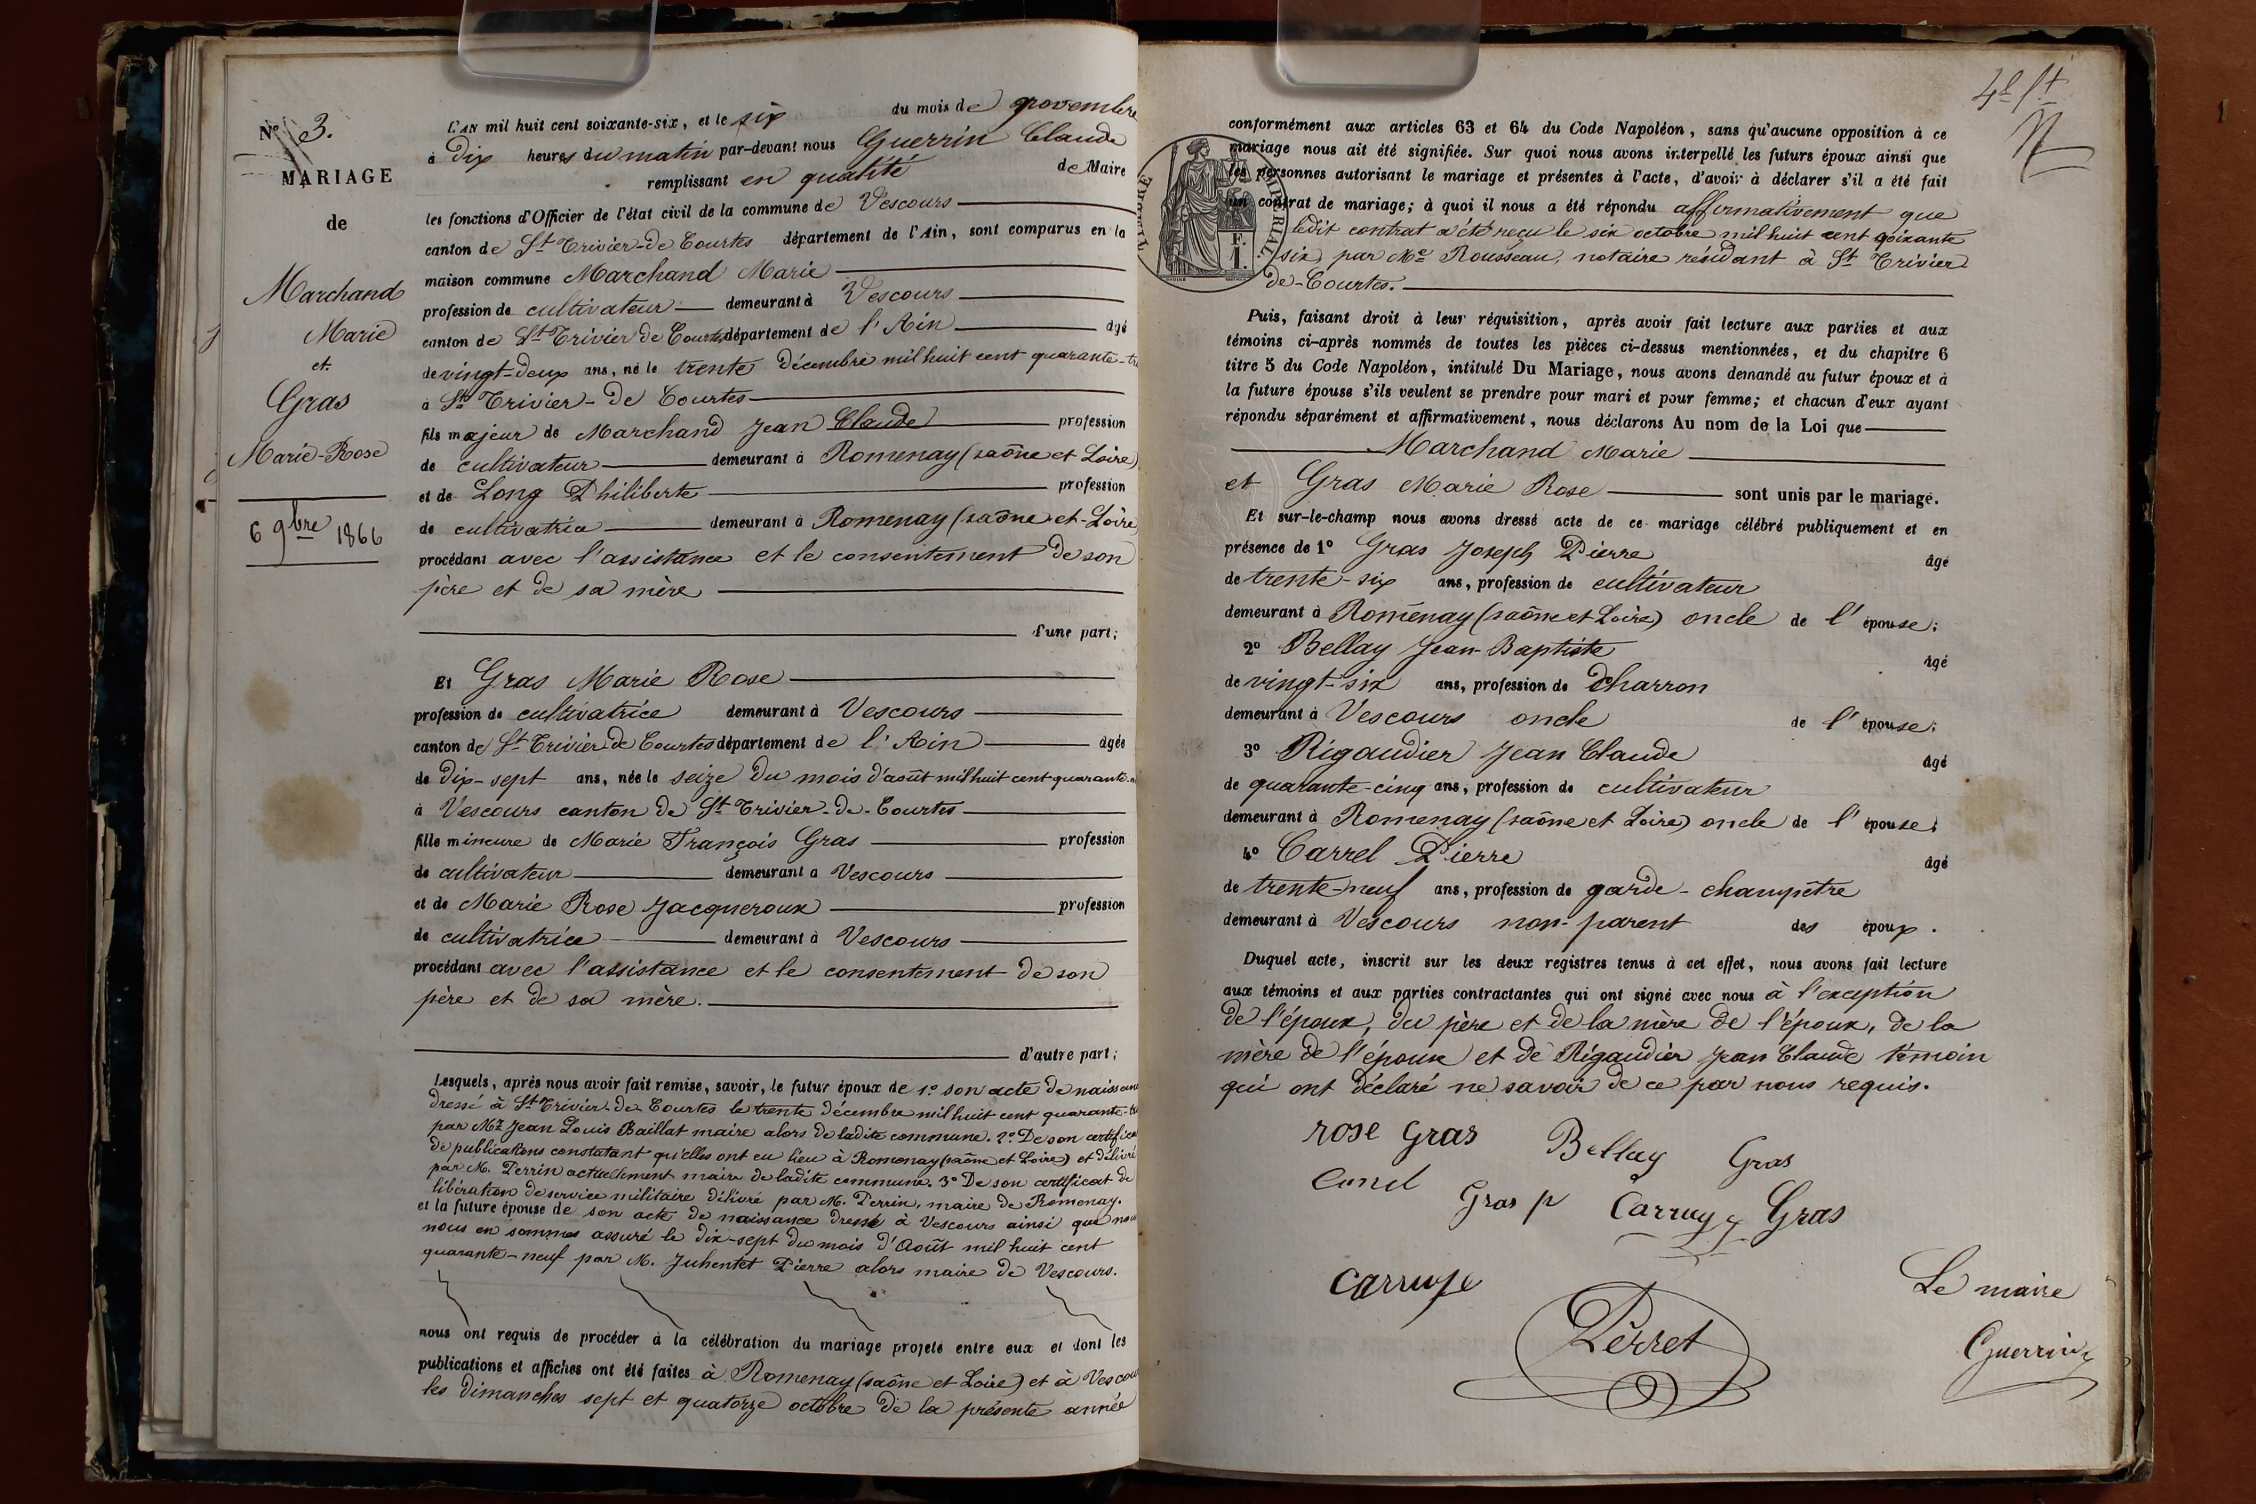 N° 3.
MARIAGE
de
Marchand
Marie
et
Gras
Marie-Rose
6 9bre 1866
L'AN mil huit cent soixante-six, et le six du mois de novembre
à dix heures du matin par-devant nous Guerrin Claude
remplissant en qualité de Maire
les fonctions d'Officier de l'état civil de la commune de Vescours
canton de St Trivier-de Courtes département de l'Ain, sont comparus en la
maison commune Marchand Marie
profession de cultivateur demeurant à Vescours
canton de St Trivier de Courtes département de l'Ain âgé
de vingt-deux ans, né le trente décembre mil huit cent quarante-
à St Trivier-de Courtes
fils majeur de Marchand Jean Claude profession
de cultivateur demeurant à Romenay (saône et Loire)
et de Long Philiberte profession
de cultivatrice demeurant à Romenay (saône-et-Loire)
procédant avec l'assistance et le consentement de son
père et de sa mère
d'une part;
Et Gras Marie Rose
profession de cultivatrice demeurant à Vescours
canton de St Trivier de Courtes département de l'Ain âgée
de dix-sept ans, née le seize du mois d'août mil huit cent quarante-
à Vescours canton de St Trivier-de-Courtes
fille mineure de Marie François Gras profession
de cultivateur demeurant à Vescours
et de Marie Rose Jacqueroux profession
de cultivatrice demeurant à Vescours
procédant avec l'assistance et le consentement de son
père et de sa mère.
d'autre part;
Lesquels, après nous avoir fait remise, savoir, le futur époux de 1° son acte de naissance
dressé à St Trivier-de-Courtes le trente décembre mil huit cent quarante-
par Mr Jean Louis Baillat maire alors de ladite commune. 2° De son certificat
de publications constatant qu'elles ont eu lieu à Romenay (saône et Loire) et délivré
par M. Perrin actuellement maire de ladite commune. 3° De son certificat de
libération de service militaire délivré par M. Perrin, maire de Romenay.
et la future épouse de son acte de naissance dressé à Vescours ainsi que nous
nous en sommes assuré le dix-sept du mois d'Août mil huit cent
quarante-neuf par M. Juhentet Pierre alors maire de Vescours.
nous ont requis de procéder à la célébration du mariage projeté entre eux et dont les
publications et affiches ont été faites à Romenay (saône et Loire) et à Vescours
les dimanches sept et quatorze octobre de la présente année
TIMBRE IMPÉRIAL
F.
1.
conformément aux articles 63 et 64 du Code Napoléon, sans qu'aucune opposition à ce
mariage nous ait été signifiée. Sur quoi nous avons interpellé les futurs époux ainsi que
les personnes autorisant le mariage et présentes à l'acte, d'avoir à déclarer s'il a été fait
un contrat de mariage; à quoi il nous a été répondu affirmativement que
ledit contrat a été reçu le six octobre mil huit cent soixante
six par Me Rousseau, notaire résidant à St Trivier
de-Courtes.
Puis, faisant droit à leur réquisition, après avoir fait lecture aux parties et aux
témoins ci-après nommés de toutes les pièces ci-dessus mentionnées, et du chapitre 6
titre 5 du Code Napoléon, intitulé Du Mariage, nous avons demandé au futur époux et à
la future épouse s'ils veulent se prendre pour mari et pour femme; et chacun d'eux ayant
répondu séparément et affirmativement, nous déclarons Au nom de la Loi que
Marchand Marie
et Gras Marie Rose sont unis par le mariage.
Et sur-le-champ nous avons dressé acte de ce mariage célébré publiquement et en
présence de 1° Gras Joseph Pierre âgé
de trente-six ans, profession de cultivateur
demeurant à Romenay (saône et Loire) oncle de l'épouse;
2° Bellay Jean-Baptiste âgé
de vingt-six ans, profession de charron
demeurant à Vescours oncle de l'épouse;
3° Rigaudier Jean Claude âgé
de quarante-cinq ans, profession de cultivateur
demeurant à Romenay (saône et Loire) oncle de l'épouse;
4° Carrel Pierre âgé
de trente-neuf ans, profession de garde-champêtre
demeurant à Vescours non-parent des époux.
Duquel acte, inscrit sur les deux registres tenus à cet effet, nous avons fait lecture
aux témoins et aux parties contractantes qui ont signé avec nous à l'exception
de l'époux, du père et de la mère de l'époux, de la
mère de l'épouse et de Rigaudier Jean Claude témoin
qui ont déclaré ne savoir de ce par nous requis.
rose Gras Bellay Gras
Gras p Gras
Perret
Le maire
Guerrin